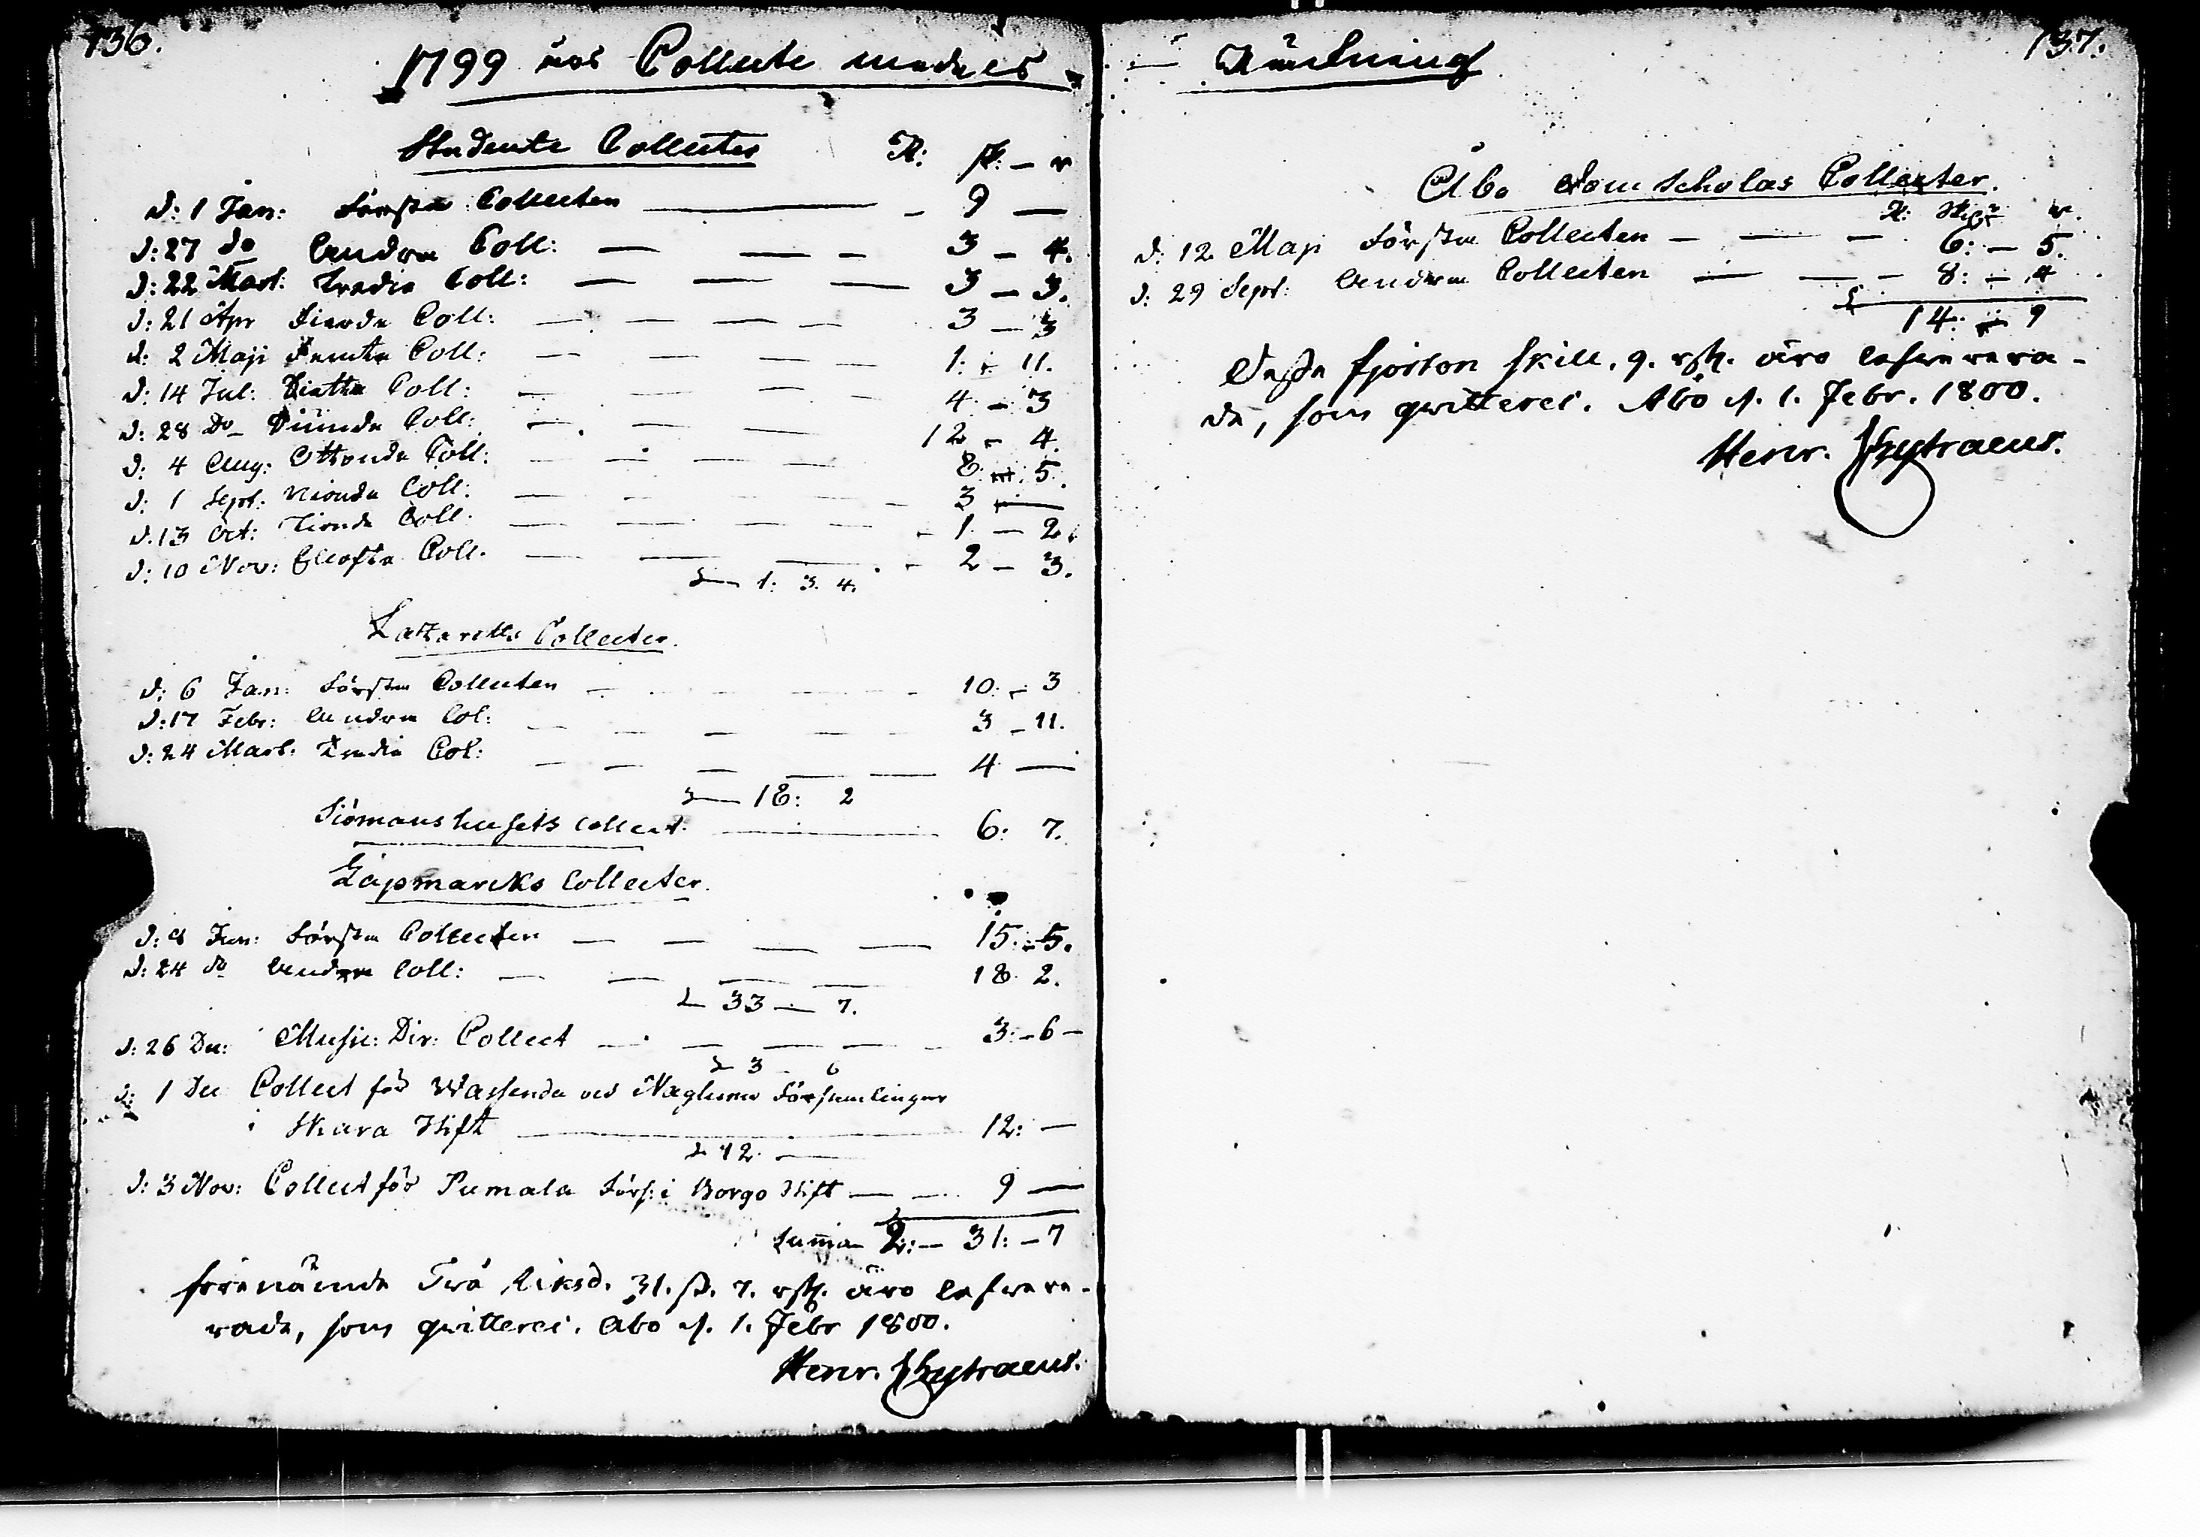 136.
1799 års Collecte medels
Studente Collecter R: sk: – r
d: 1 Jan: Första Collecten — 9 —
d: 27 do Andra Coll: — 3 – 4.
d: 22 Mart: Tredie Coll: — 3 – 3.
d: 21 Apr Fierde Coll: — 3 – 3
d: 2 Maji Femte Coll: — 1: – 11.
d: 14 Jul: Siette Coll: — 4 – 3
d: 28 Do Siunde Coll: — 12 – 4.
d: 4 Aug: Ottonde Coll: — 8 – 5.
d: 1 Sept: Nionde Coll: — 3 —
d. 13 Oct: Tionde Coll: — 1 – 2.
d: 10 Nov: Ellofte Coll. — 2 – 3.
S— 1: 3. 4.
Lazaretts Collecter.
d: 6 Jan: Första Collecten — 10: – 3
d: 17 Febr: Andra Col: — 3 – 11.
d: 24 Mart: Tredie Col: — 4 —
S— 18: 2
Siömanshusets Collect: — 6: 7.
Lapmarcks Collecter.
Första Collecten — 15: – 5.
d: 24 do Andra Coll: — 18 2.
S— 33 — 7.
d: 26 Dec: Music: Dir: Collect — 3: – 6 –
S— 3 – 6
d: 1 Dec Collect för Wassenda och Naglums Församlingar
i Skara Stift — 12: —
S— 12 —
d: 3 Nov: Collect för Pumala Förs: i Borgo Stift — 9 —
Summa 2: – 31: – 7
förenämde Två Riksd. 31. sk. 7. rst. äro lefwere-
rade, som qvitteres. Åbo d. 1. Febr 1800.
Henr. Skytraeus.
Räkning
137.
Åbo Dom Scholas Collecter.
R: Skill: r.
d: 12 Maji Första Collecten — 6: – 5.
d: 29 Sept: Andra Collecten — 8: – 4
S 14: – 9
Dessa fjorton skill. 9. rst. äro lefwerera-
de, som qwitteres. Åbo d. 1. Febr. 1800.
Henr. Skytraeus.